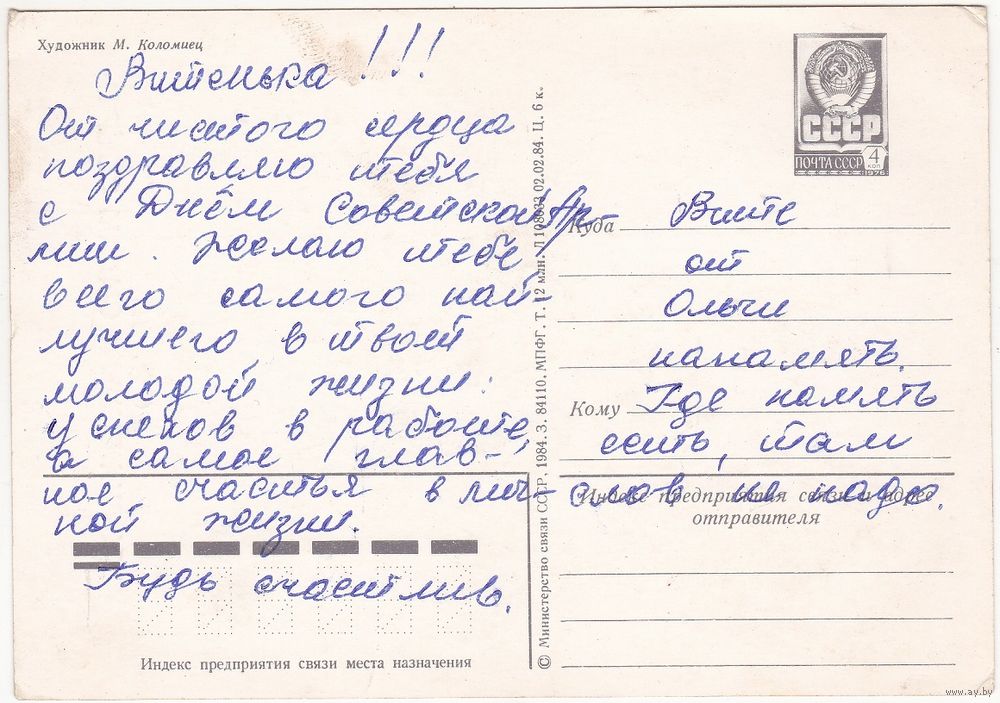 Художник М. Коломиец
Витенька!!!
От чистого сердца
поздравляю тебя
с Днём Советской Ар-
мии. Желаю тебе
всего самого най-
лучшего в твоей
молодой жизни:
успехов в работе,
а самое глав-
ное счастья в лич-
ной жизни.
Будь счастлив.
Индекс предприятия связи места назначения
© Министерство связи СССР. 1984. З. 84110. МПФГ. Т. 12 млн. Л 108033 02.02.84. Ц. 6 к.
СССР
ПОЧТА СССР 4 КОП
1976
Куда Вите
от
Ольги
на память.
Кому Где память
есить, там
слов не надо.
Индекс предприятия связи и адрес
отправителя
www.ay.by